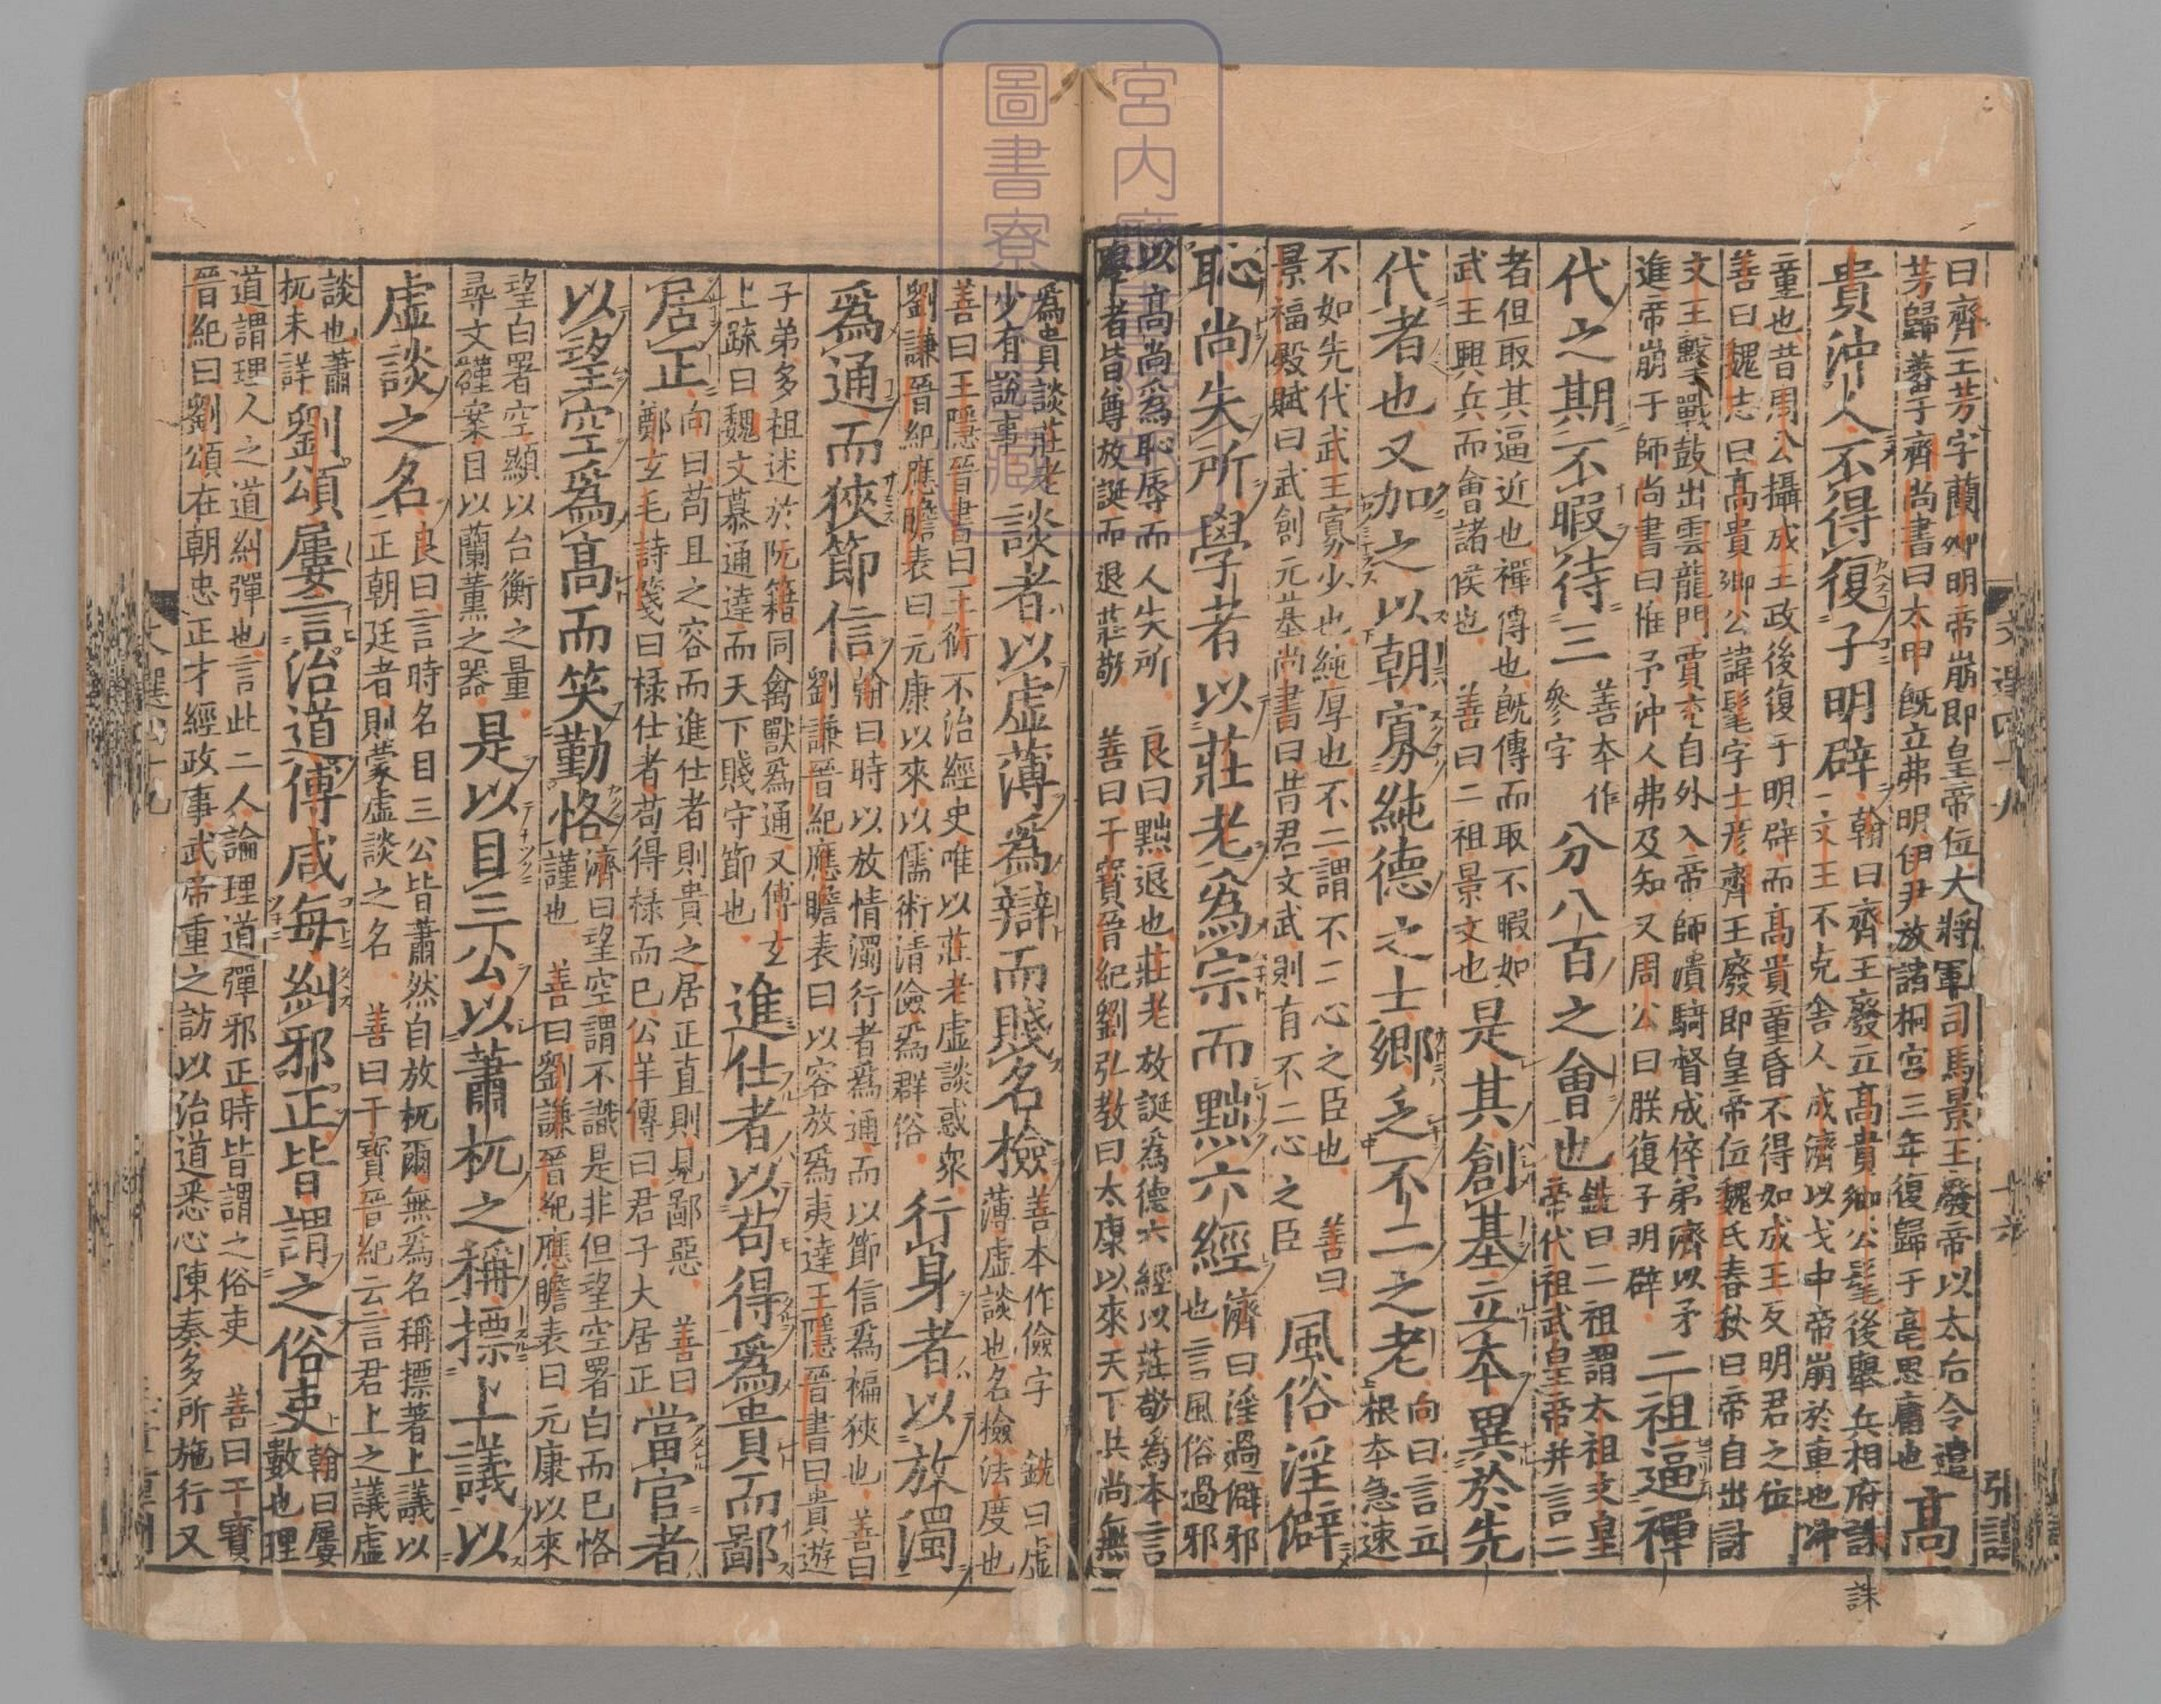 曰齊王芳字蘭卿明帝崩即皇帝位大將軍司馬景王廢帝以太后令遣
芳歸蕃于齊尚書曰太甲旣立弗明伊尹放諸桐宮三年復歸于亳思庸也
高
貴沖人不得復子明辟
翰曰齊王廢立高貴卿公髦後舉兵相府誅
二文王不克舍人成濟以戈中帝崩於車也沖
誅
童也昔周公攝成王政後復于明辟而高貴童昏不得如成王反明君之位
善曰魏志曰高貴卿公諱髦字士彥齊王廢即皇帝位魏氏春秋曰帝自出討
文王擊戰鼓出雲龍門賈充自外入帝師潰騎督成倅弟濟以矛
進帝崩于師尚書曰惟予沖人弗及知又周公曰朕復子明辟
二祖逼禪
代之期不暇待三
善本作
參字
分八百之會也
銑曰二祖謂太祖文皇
帝代祖武皇帝并言二
者但取其逼近也禪傳也旣傳而取不暇如
武王興兵而會諸侯也 善曰二祖景文也
是其創基立本異於先
代者也又加之以朝寡純德之士鄉乏不二之老
向曰言立
根本急速
不如先代武王寡少也純厚也不二謂不二心之臣也 善曰
景福殿賦曰武創元基尚書曰昔君文武則有不二心之臣
風俗淫僻
恥尚失所學者以莊老爲宗而黜六經
濟曰淫過僻邪
也言風俗過邪
以高尚爲恥辱而人失所 良曰黜退也莊老放誕爲德六經以莊敬爲本言
學者皆尊放誕而退莊敬 善曰干寶晉紀劉弘教曰太康以來天下共尚無
爲貴談莊老
少有說事
談者以虛薄爲辯而賤名檢
善本作儉字 銑曰虛
薄虛談也名檢法度也
善曰王隱晉書曰王衍不治經史唯以莊老虛談惑衆
劉謙晉紀應瞻表曰元康以來以儒術清儉爲群俗
行身者以放濁
爲通而狹節信
翰曰時以放情濁行者爲通而以節信爲褊狹也 善曰
劉謙晉紀應瞻表曰以容放爲夷達王隱晉書曰貴遊
子弟多祖述於阮籍同禽獸爲通又傅玄
上疏曰魏文慕通達而天下賤守節也
進仕者以苟得爲貴而鄙
居正
向曰苟且之容而進仕者則貴之居正直則見鄙惡 善曰
鄭玄毛詩箋曰祿仕者苟得祿而已公羊傳曰君子大居正
當官者
以望空爲高而笑勤恪
濟曰望空謂不識是非但望空署白而已恪
謹也 善曰劉謙晉紀應瞻表曰元康以來
望白署空顯以台衡之量
尋文謹案目以蘭薰之器
是以目三公以蕭杌之稱摽上議以
虛談之名
良曰言時名目三公皆蕭然自放杌爾無爲名稱摽著上議以
正朝廷者則蒙虛談之名 善曰干寶晉紀云言君上之議虛
談也蕭
杌未詳
劉頌屢言治道傅咸每糾邪正皆謂之俗吏
翰曰屢
數也理
道謂理人之道糾彈也言此二人論理道彈邪正時皆謂之俗吏 善曰干寶
晉紀曰劉頌在朝忠正才經政事武帝重之訪以治道悉心陳奏多所施行又
宮内庁
圖書寮